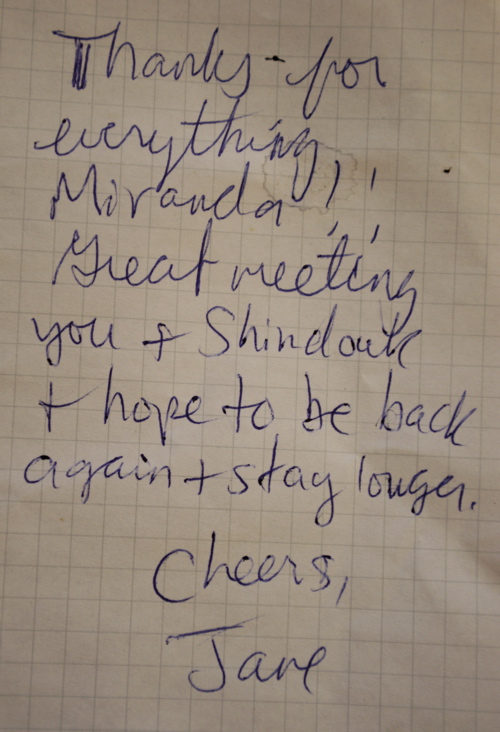 Thanks for
everything,
Miranda !!
Great meeting
you + Shindouk
+ hope to be back
again + stay longer.
Cheers,
Jane